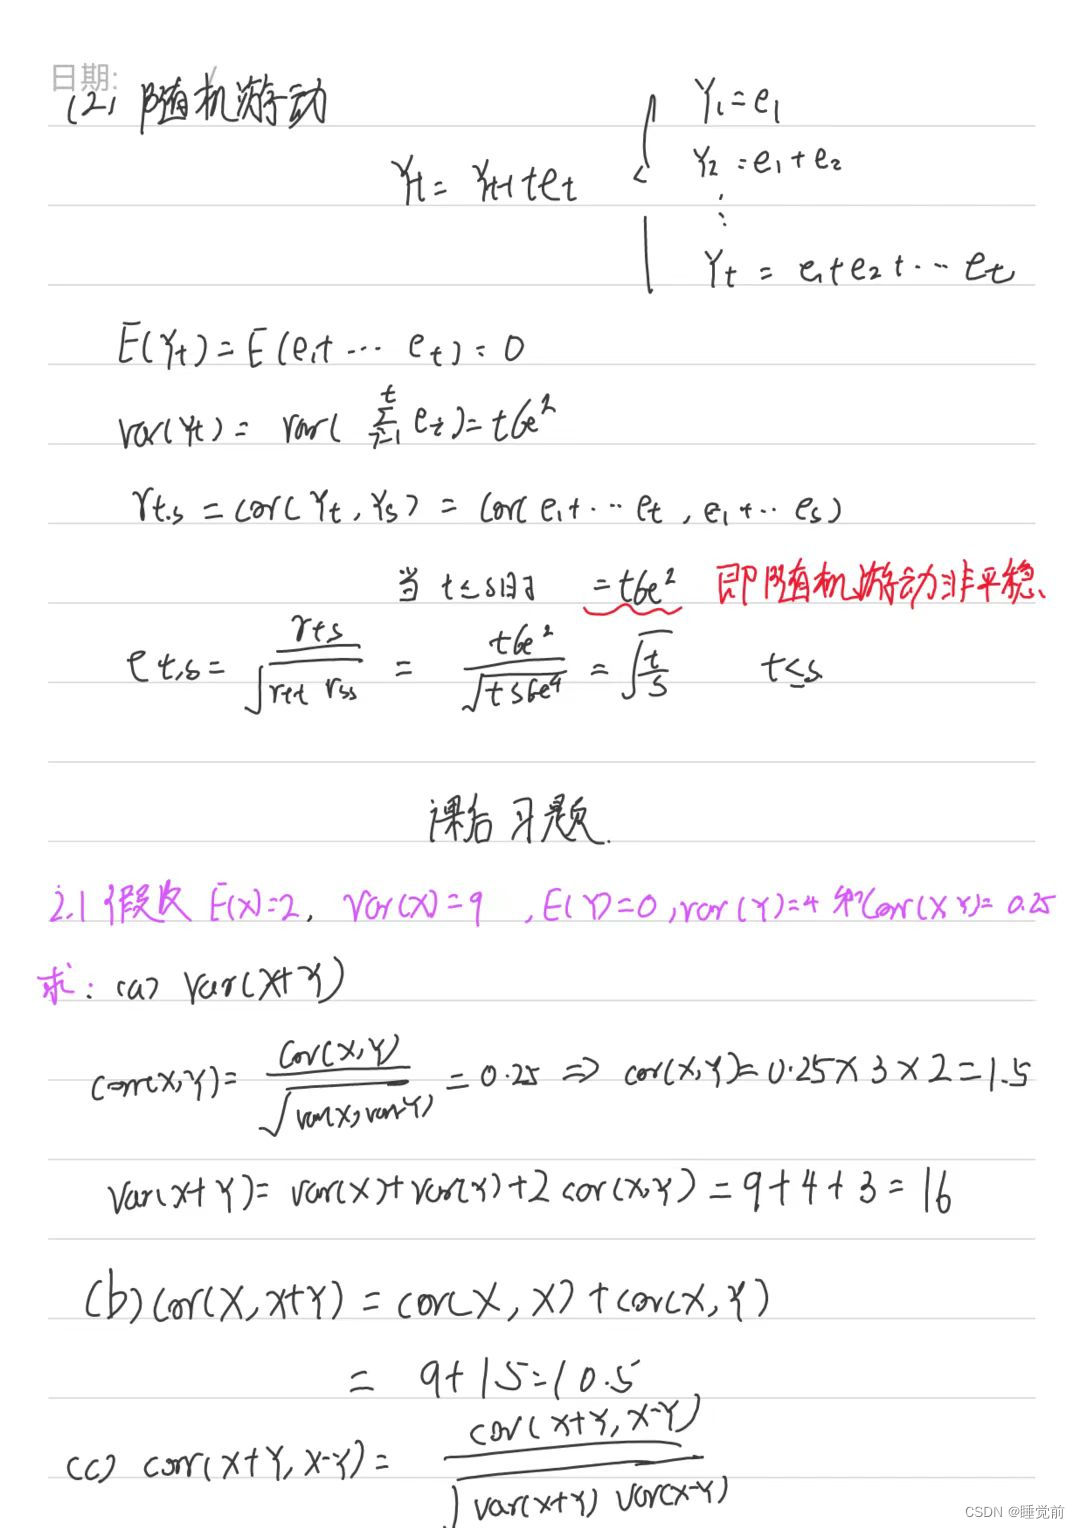 日期: /
(2) 随机游动
Y₁ = e₁
Yt = Yt-1 + et
Y₂ = e₁ + e₂
⋮
Yt = e₁ + e₂ + ... et
E(Yt) = E(e₁ + ... et) = 0
var(Yt) = var(∑_{i=1}^{t} ei) = tσe²
rt,s = cov(Yt, Ys) = cov(e₁ + ... et, e₁ + ... es)
当 t ≤ s时 = tσe² 即随机游动非平稳.
ρt,s = rts / √(rtt rss) = tσe² / √(tsσe⁴) = √(t/s) t ≤ s
课后习题.
2.1 假设 E(X)=2, Var(X)=9, E(Y)=0, var(Y)=4 和Corr(X,Y)=0.25
求: (a) Var(X+Y)
corr(X,Y) = Cov(X,Y) / √(var(X), var(Y)) = 0.25 ⇒ cov(X,Y) = 0.25×3×2 = 1.5
Var(X+Y) = var(X)+var(Y)+2cov(X,Y) = 9+4+3 = 16
(b) Cov(X, X+Y) = cov(X, X) + cov(X, Y)
= 9+1.5=10.5
(c) corr(X+Y, X-Y) = cov(X+Y, X-Y) / √(var(X+Y) var(X-Y))
CSDN @睡觉前